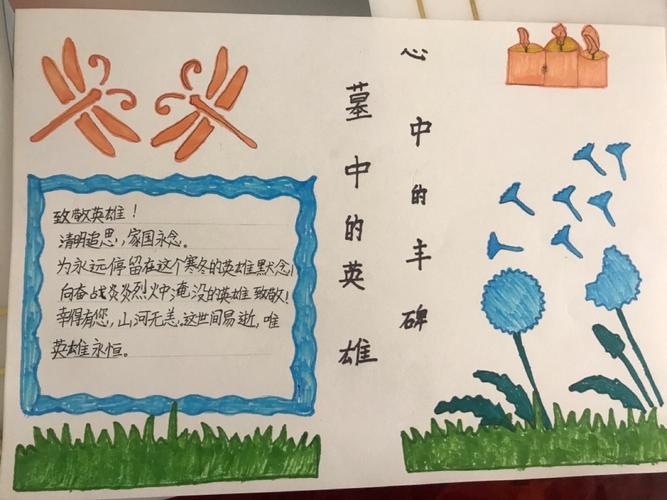 心中的丰碑
墓中的英雄
致敬英雄！
清明追思，家国永念。
为永远停留在这个寒冬的英雄默念！
向奋战炎炎烈火中淹没的英雄致敬！
幸得有您，山河无恙。这世间易逝，唯
英雄永恒。